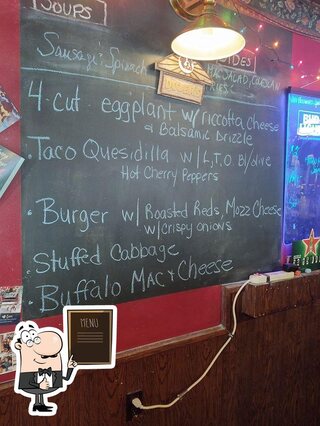 SOUPS
SIDES
Sausage & Spinach
MAC SALAD, COLESLAW
4 cut eggplant w/ riccotta cheese
& Balsamic Drizzle
• Taco Quesidilla w/ L,T,O. Bl/olive
Hot Cherry Peppers
• Burger w/ Roasted Reds, Mozz Cheese
w/crispy onions
• Stuffed Cabbage
• Buffalo Mac & Cheese
BUD
LIGHT
MENU